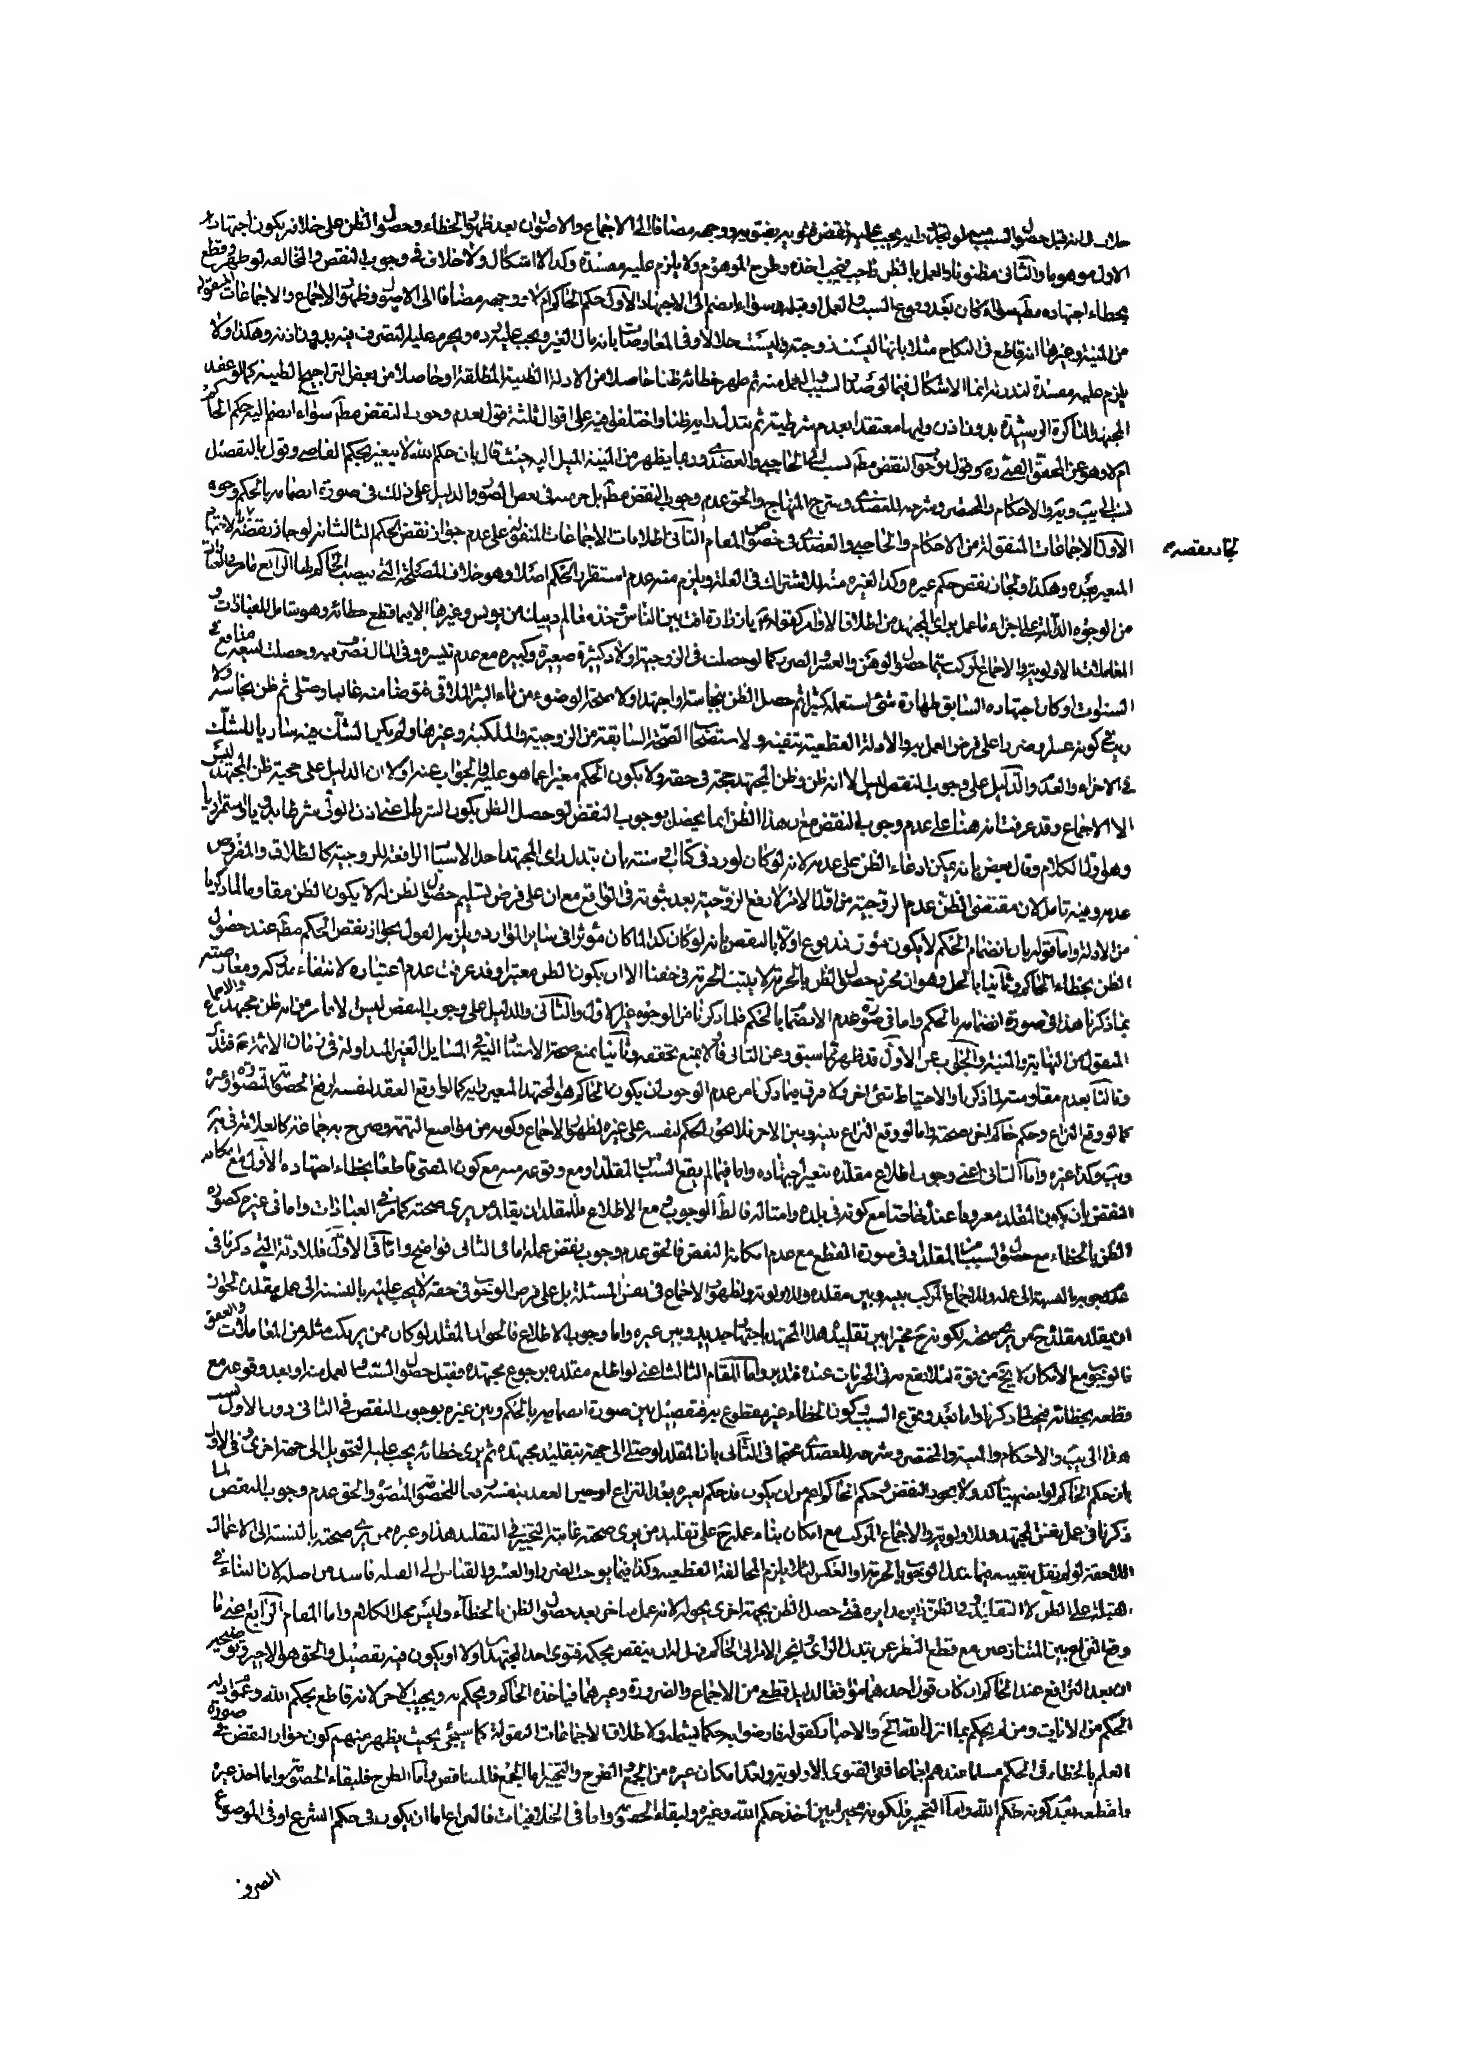 خلاف فى انه قبل حصول السبب لو تجدد رايه يجب عليه نقض فتويه بفتويه ووجهه مضافا الى الاجماع والاصول ان بعد ظهور الخطاء وحصول الظن على خلافه يكون اجتهاده
الاول موهوما والثانى مظنونا والعمل بالظن واجب فيجب اخذه وطرح الموهوم ولا يلزم عليه مفسدة وكذا لا اشكال ولا خلاف فى وجوب النقض والمخالفة لو ظهر وقطع
بخطاء اجتهاده مطلقا سواء كان بعد وقوع السبب والعمل او قبله سواء انضم الى الاجتهاد الاول حكم الحاكم ام لا ووجهه مضافا الى الاصول وظهور الاجماع والاجماعات المنقولة
من المنية وغيرها انه قاطع فى النكاح مثلا بانها ليست زوجته وليست حلالا وفى المعاوضات بانه مال الغير ويجب عليه رده ويحرم عليه التصرف فيه بدون اذنه وهكذا ولا
يلزم عليه مفسدة لندرته انما الاشكال فيما لو صدر السبب والعمل منه ثم ظهر خطائه ظنا حاصلا من الادلة الظنية المطلقة او حاصلا من بعض التراجيح الظنية كما لو عقد
المجتهد الباكرة الرشيدة بدون اذن وليها معتقدا بعدم شرطيته ثم تبدل رايه ظنا واختلفوا فيه على اقوال ثلثة قول بعدم وجوب النقض مطلقا سواء انضم اليه حكم الحاكم
ام لا وهو عن المحقق وقول بوجوب النقض مطلقا نسب الى الحاجبى والعضدى وربما يظهر من المنية الميل اليه حيث قال بان حكم الله لا يتغير بحكم القاضى وقول بالتفصيل
نسب الى التهذيب والاحكام والمختصر وشرحه للعضدى وشرح المنهاج والحق عدم وجوب النقض مطلقا بل حرمته فى بعض الصور والدليل على ذلك فى صورة انضمامه بالحكم وجوه
الاول الاجماعات المنقولة من الاحكام والحاجبى والعضدى فى خصوص المقام الثانى اطلاقات الاجماعات المنقولة على عدم جواز نقض الحكم الثالث انه لو جاز نقضه بالاجتهاد
لجاز نقضه
المتغير بعده وهكذا ولجاز نقض حكم غيره وكذا لغيره منه للاشتراك فى العلة ويلزم منه عدم استقرار الحكم اصلا وهو خلاف المصلحة التى نصب الحاكم لها الرابع ما مر
من الوجوه الدالة على اجزاء ما عمل براى المجتهد من اطلاق الاوامر كقوله يا زرارة افت بين الناس وخذ معالم دينك من يونس وغيرها الا فيما قطع خطائه وهو شامل للعبادات و
المعاملات والاولوية والاجماع المركب سيما حصول الوهن والعسر والضرر كما لو حصلت فى الزوجية اولاد كثيرة صغيرة وكبيرة مع عدم تيسره وفى المال تصرف فيه وحصلت لسعيه منافع فى
السنوات او كان اجتهاده السابق طهارة شئ استعمله كثيرا ثم حصل الظن بنجاسته او اجتهد اولا بصحة الوضوء من ماء البئر الملاقى وصلى ثم ظن بنجاسته ولا
ريب فى كونه عسرا وضررا على فرض العمل به والادلة القطعية تنفيه ولاستصحاب الصحة السابقة من الزوجية والملكية وغيرها ولم يكن الشك فيه ساريا للشك
فى الاجزاء والعدم والدليل على وجوب النقض ليس الا انه ظن وظن المجتهد حجة فى حقه ولا يكون الحكم مغيرا عما هو عليه والجواب عنه اولا ان الدليل على حجية ظن المجتهد ليس
الا الاجماع وقد عرفت انه هنا على عدم وجوب النقض مع ان هذا الظن انما يحصل بوجوب النقض لو حصل الظن بكون الشرط مثل اذن الولى شرطا
وهو اول الكلام وقال بعض بانه يمكن ادعاء الظن على عدمه لانه لو كان لورد فى كتاب وسنة بان تبدل راى المجتهد احد الاسباب الرافعة للزوجية كالطلاق والمفروض
عدمه وفيه تامل لان مقتضى الظن عدم الزوجية من اول الامر لا رفع الزوجية بعد ثبوته فى الواقع مع ان على فرض تسليم حصول الظن له لا يكون الظن مقاوما لما ذكرنا
من الادلة واما قوله بان انضمام الحكم لا يكون مؤثرا فمدفوع اولا بالنقض بانه لو كان كذا لما كان مؤثرا فى ساير الموارد ويلزمه القول بجواز نقض الحكم مطلقا عند حصول
الظن بخطاء الحاكم وثانيا بالحل وهو ان مجرد حصول الظن بالحرمة لا يثبت الحرمة فى حقنا الا ان يكون الظن معتبرا وقد عرفت عدم اعتباره لانتفاء مدركه ومعارضته
بما ذكرنا هذا فى صورة انضمامه بالحكم واما فى صورة عدم الانضمام بالحكم فلما ذكرنا من الوجوه غير الاول والثانى والدليل على وجوب النقض ليس الا ما مر من انه ظن مجتهد والاجماع
المنقول من النهاية والمنية والجواب عن الاول قد ظهر مما سبق وعن الثانى اولا بمنع تحققه وثانيا بمنع صحة الاستناد اليه فى المسايل الغير المتداولة فى زمان الائمة ع
وثالثا بعدم مقاومته لما ذكرنا والاحتياط شئ اخر ولا فرق فيما ذكرنا من عدم الوجوب ان يكون الحاكم هو المجتهد المتغير رايه كما لو اوقع العقد لنفسه او غيره
كما لو وقع النزاع وحكم حاكم اخر بصحته واما لو وقع النزاع بينه وبين الاخر فلا يجوز الحكم لنفسه على غيره لظهور الاجماع وكونه من مواضع التهمة وصرح به جماعة كالعلامة فى
التهذيب وكذا غيره واما الثانى اعنى وجوب اطلاع مقلده بتغير اجتهاده واما فيما لم يقع السبب من المقلد او مع وقوعه منه مع كون المفتى قاطعا بخطاء اجتهاده الاول مع امكانه
النقض بان يكون المقلد معروفا عنده مع كونه فى بلده وامثاله فالظاهر الوجوب ومع الاطلاع فللمقلد ان يقلد من يرى صحته كما مر فى العبادات واما فى غيره كصورة
الظن بالخطاء مع حصول السبب من المقلد او فى صورة القطع مع عدم امكانه النقض فالحق عدم وجوب نقض عمله اما فى الثانى فواضح واما فى الاول فللادلة التى ذكرنا فى
عدم وجوبه بالنسبة الى عمله وللاجماع المركب بينه وبين مقلده وللاولوية ولظهور الاجماع فى نفس المسئلة بل على فرض الوجوب فى حقه لا يجب عليه بالنسبة الى عمل مقلده لجواز
ان يقلد مقلده من يرى صحته لكونه مخيرا بين تقليد هذا المجتهد باجتهاد جديد وبين غيره واما وجوب الاطلاع فالحق ان المقلد لو كان ممن يرتكب مثله من المعاملات والعقود
فالوجوب مع الامكان لا يخ من قوة لئلا يقع فى المحرمات عنده فتدبر واما المقام الثالث اعنى لو اطلع مقلده برجوع مجتهده فقبل حصول السبب والعمل منه او بعد وقوعه مع
قطعه بخطائه فيجب لما ذكرنا واما بعد وقوع السبب وكون الخطاء غير مقطوع به فتفصيل بين صورة انضمامه بالحكم وبين غيره بوجوب النقض فى الثانى دون الاول نسب
هذا الى التهذيب والاحكام والمنية والمختصر وشرحه للعضدى محتجا فى الثانى بان المقلد لو صلى الى جهة بتقليد مجتهده ثم يرى خطائه يجب عليه التحويل الى جهة اخرى وفى الاول
بان حكم الحاكم لو انضم يتاكد ولا يجوز النقض وحكم الحاكم اعم من ان يكون قد حكم لغيره بعد النزاع او حين العقد بنفسه رفعا للخصومة المتصورة والحق عدم وجوب النقض لما
ذكرنا فى عمل نفس المجتهد وللاولوية والاجماع المركب مع امكان بناء عمله على تقليد من يرى صحته غايته التخيير فى التقليد هذا وغيره ممن يرى صحته بالنسبة الى الاعمال
اللاحقة لو لم نقل بتعيينه فيما تبدل الوجوب بالحرمة او العكس لئلا يلزم المخالفة القطعية وكذا فيما يوجب الضرر او العسر والقياس الى الصلوة فاسد من اصله لان البناء فى
القبلة على الظن لا التقليد والظن داير مداره فمتى حصل الظن بجهة اخرى يحول لانه عمل اخر بعد حصول الظن بالخطاء وليس محل الكلام واما المقام الرابع اعنى ما
وقع النزاع بين المتنازعين مع قطع النظر عن تبدل الراى لينجر الامر الى الحاكم فهل له ان ينقض بحكمه فتوى احد المجتهدين اولا او يكون فيه تفصيل والحق هو الاخير وتوضيحه
ان بعد الترافع عند الحاكم ان كان قول احدهما موافقا لدليل قطعى من الاجماع والضرورة وغيرهما فياخذه الحاكم ويحكم به ويجيب الاخر لانه قاطع بحكم الله وعموم ادلة
الحكم من الايات ومن لم يحكم بما انزل الله الخ والاخبار كقوله فارضوا به حكما يشمله ولاطلاق الاجماعات المنقولة كما سيجئ بحيث يظهر منهم كون جواز النقض فى صورة
العلم بالخطاء فى الحكم مسلما عندهم اجماعا ففى الفتوى بالاولوية ولعدم امكان غيره من الجمع والطرح والتخيير اما الجمع فللتناقض واما الطرح فلبقاء الخصومة واما اخذ غيره
ما قطعه بعدم كونه حكم الله واما التخيير فلكونه مخيرا بين اخذ حكم الله وغيره ولبقاء الخصومة واما فى الخلافيات فالنزاع اما ان يكون فى حكم الشرع او فى الموضوع
الصرف